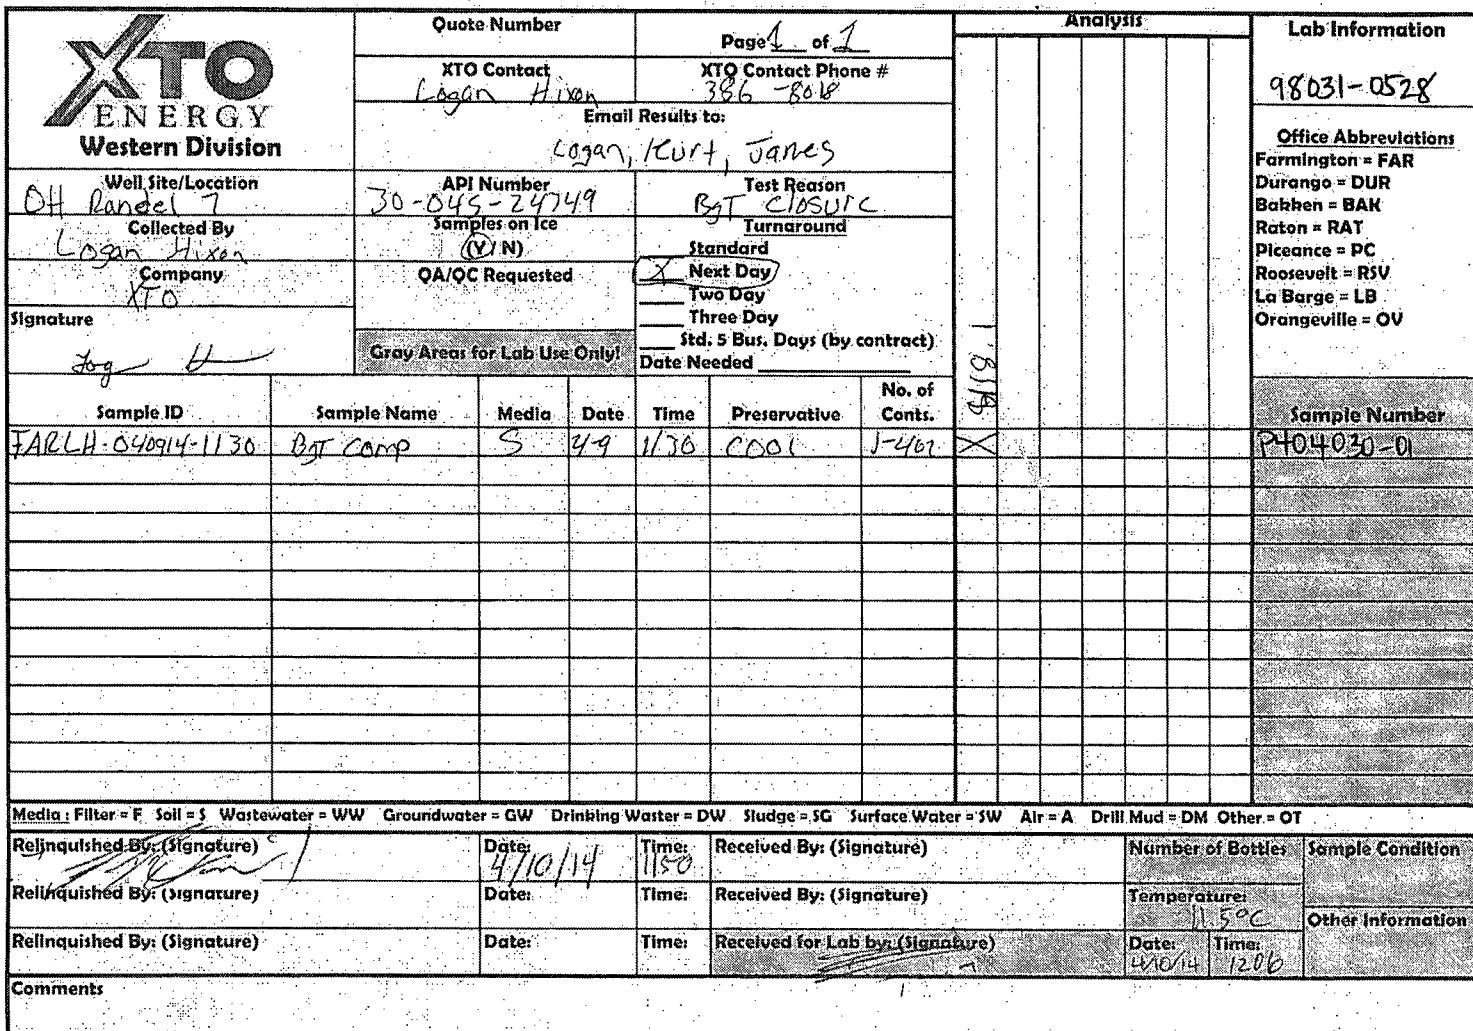 XTO
ENERGY
Western Division
Quote Number
Page 1 of 1
XTO Contact
Logan Hixon
XTO Contact Phone #
386-8018
Email Results to:
Logan, Kurt, James
Analysis
Lab Information
98031-0528
Office Abbreviations
Farmington = FAR
Durango = DUR
Bakken = BAK
Raton = RAT
Piceance = PC
Roosevelt = RSV
La Barge = LB
Orangeville = OV
Well Site/Location
OH Randel 7
API Number
30-045-24749
Test Reason
BGT Closure
Collected By
Logan Hixon
Samples on Ice
(Y/N)
Turnaround
Standard
X Next Day
Two Day
Three Day
Std. 5 Bus. Days (by contract)
Date Needed
Company
XTO
QA/QC Requested
Signature
Gray Areas for Lab Use Only!
Sample ID Sample Name Media Date Time Preservative No. of Conts. 418.1 Sample Number
FARLH-040914-1130 BGT Comp S 4-9 1130 Cool 1-4oz X P404030-01
Media : Filter = F Soil = S Wastewater = WW Groundwater = GW Drinking Waster = DW Sludge = SG Surface Water = SW Air = A Drill Mud = DM Other = OT
Relinquished By: (Signature) Date: 4/10/14 Time: 1150 Received By: (Signature) Number of Bottles Sample Condition
Relinquished By: (Signature) Date: Time: Received By: (Signature) Temperature: 11.5°C
Other Information
Relinquished By: (Signature) Date: Time: Received for Lab by: (Signature) Date: 4/10/14 Time: 1206
Comments